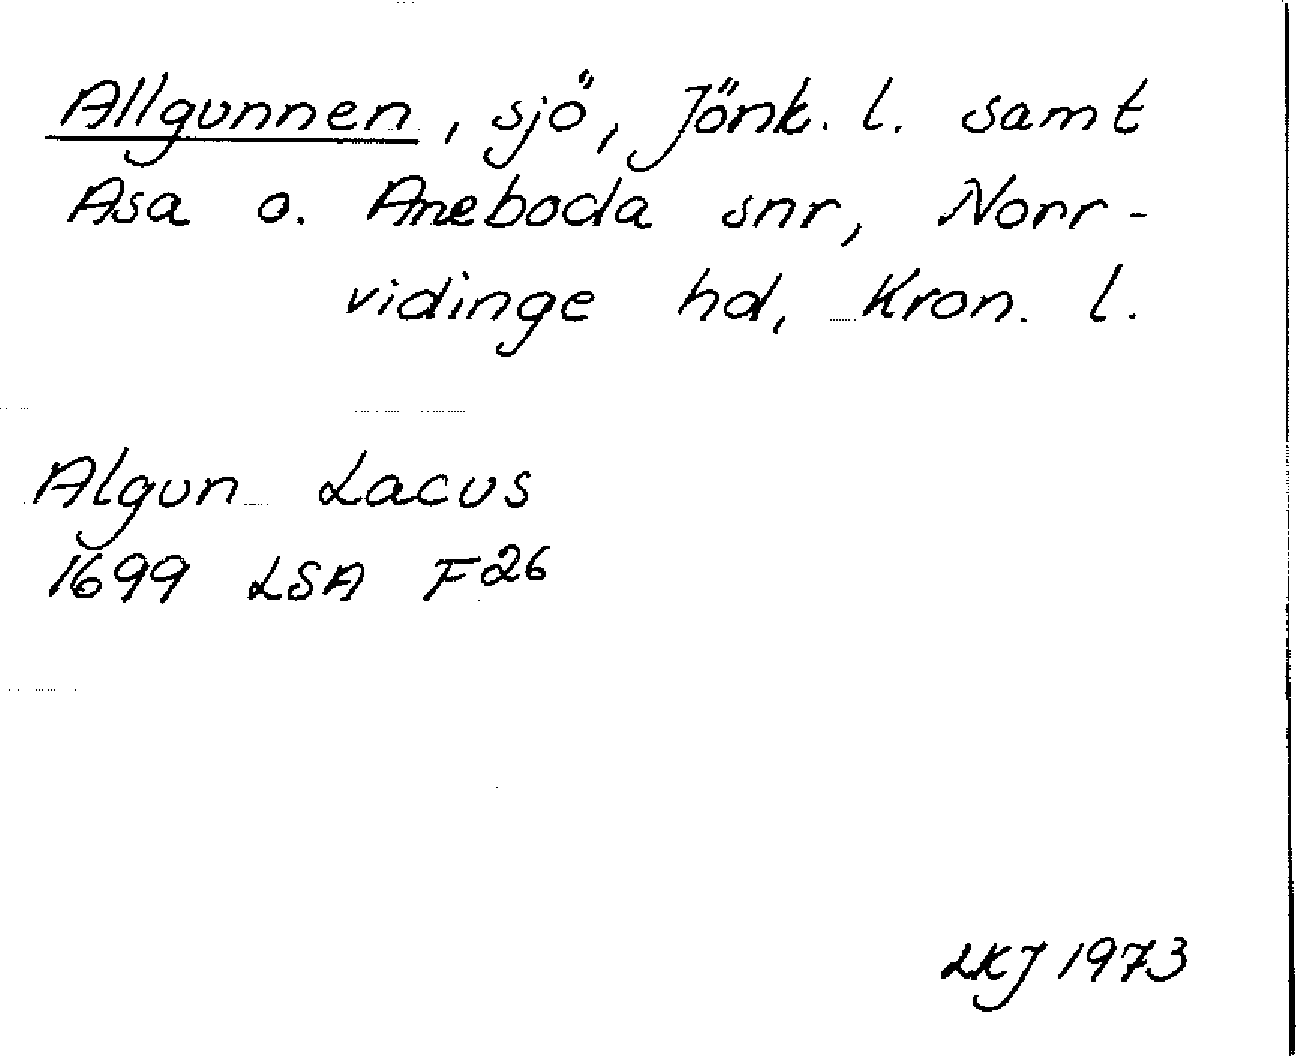 Allgunnen, sjö, Jönk. l. samt
Asa o. Aneboda snr, Norr-
vidinge hd, Kron. l.
Algun Lacus
1699 LSA F26
LKJ 1973